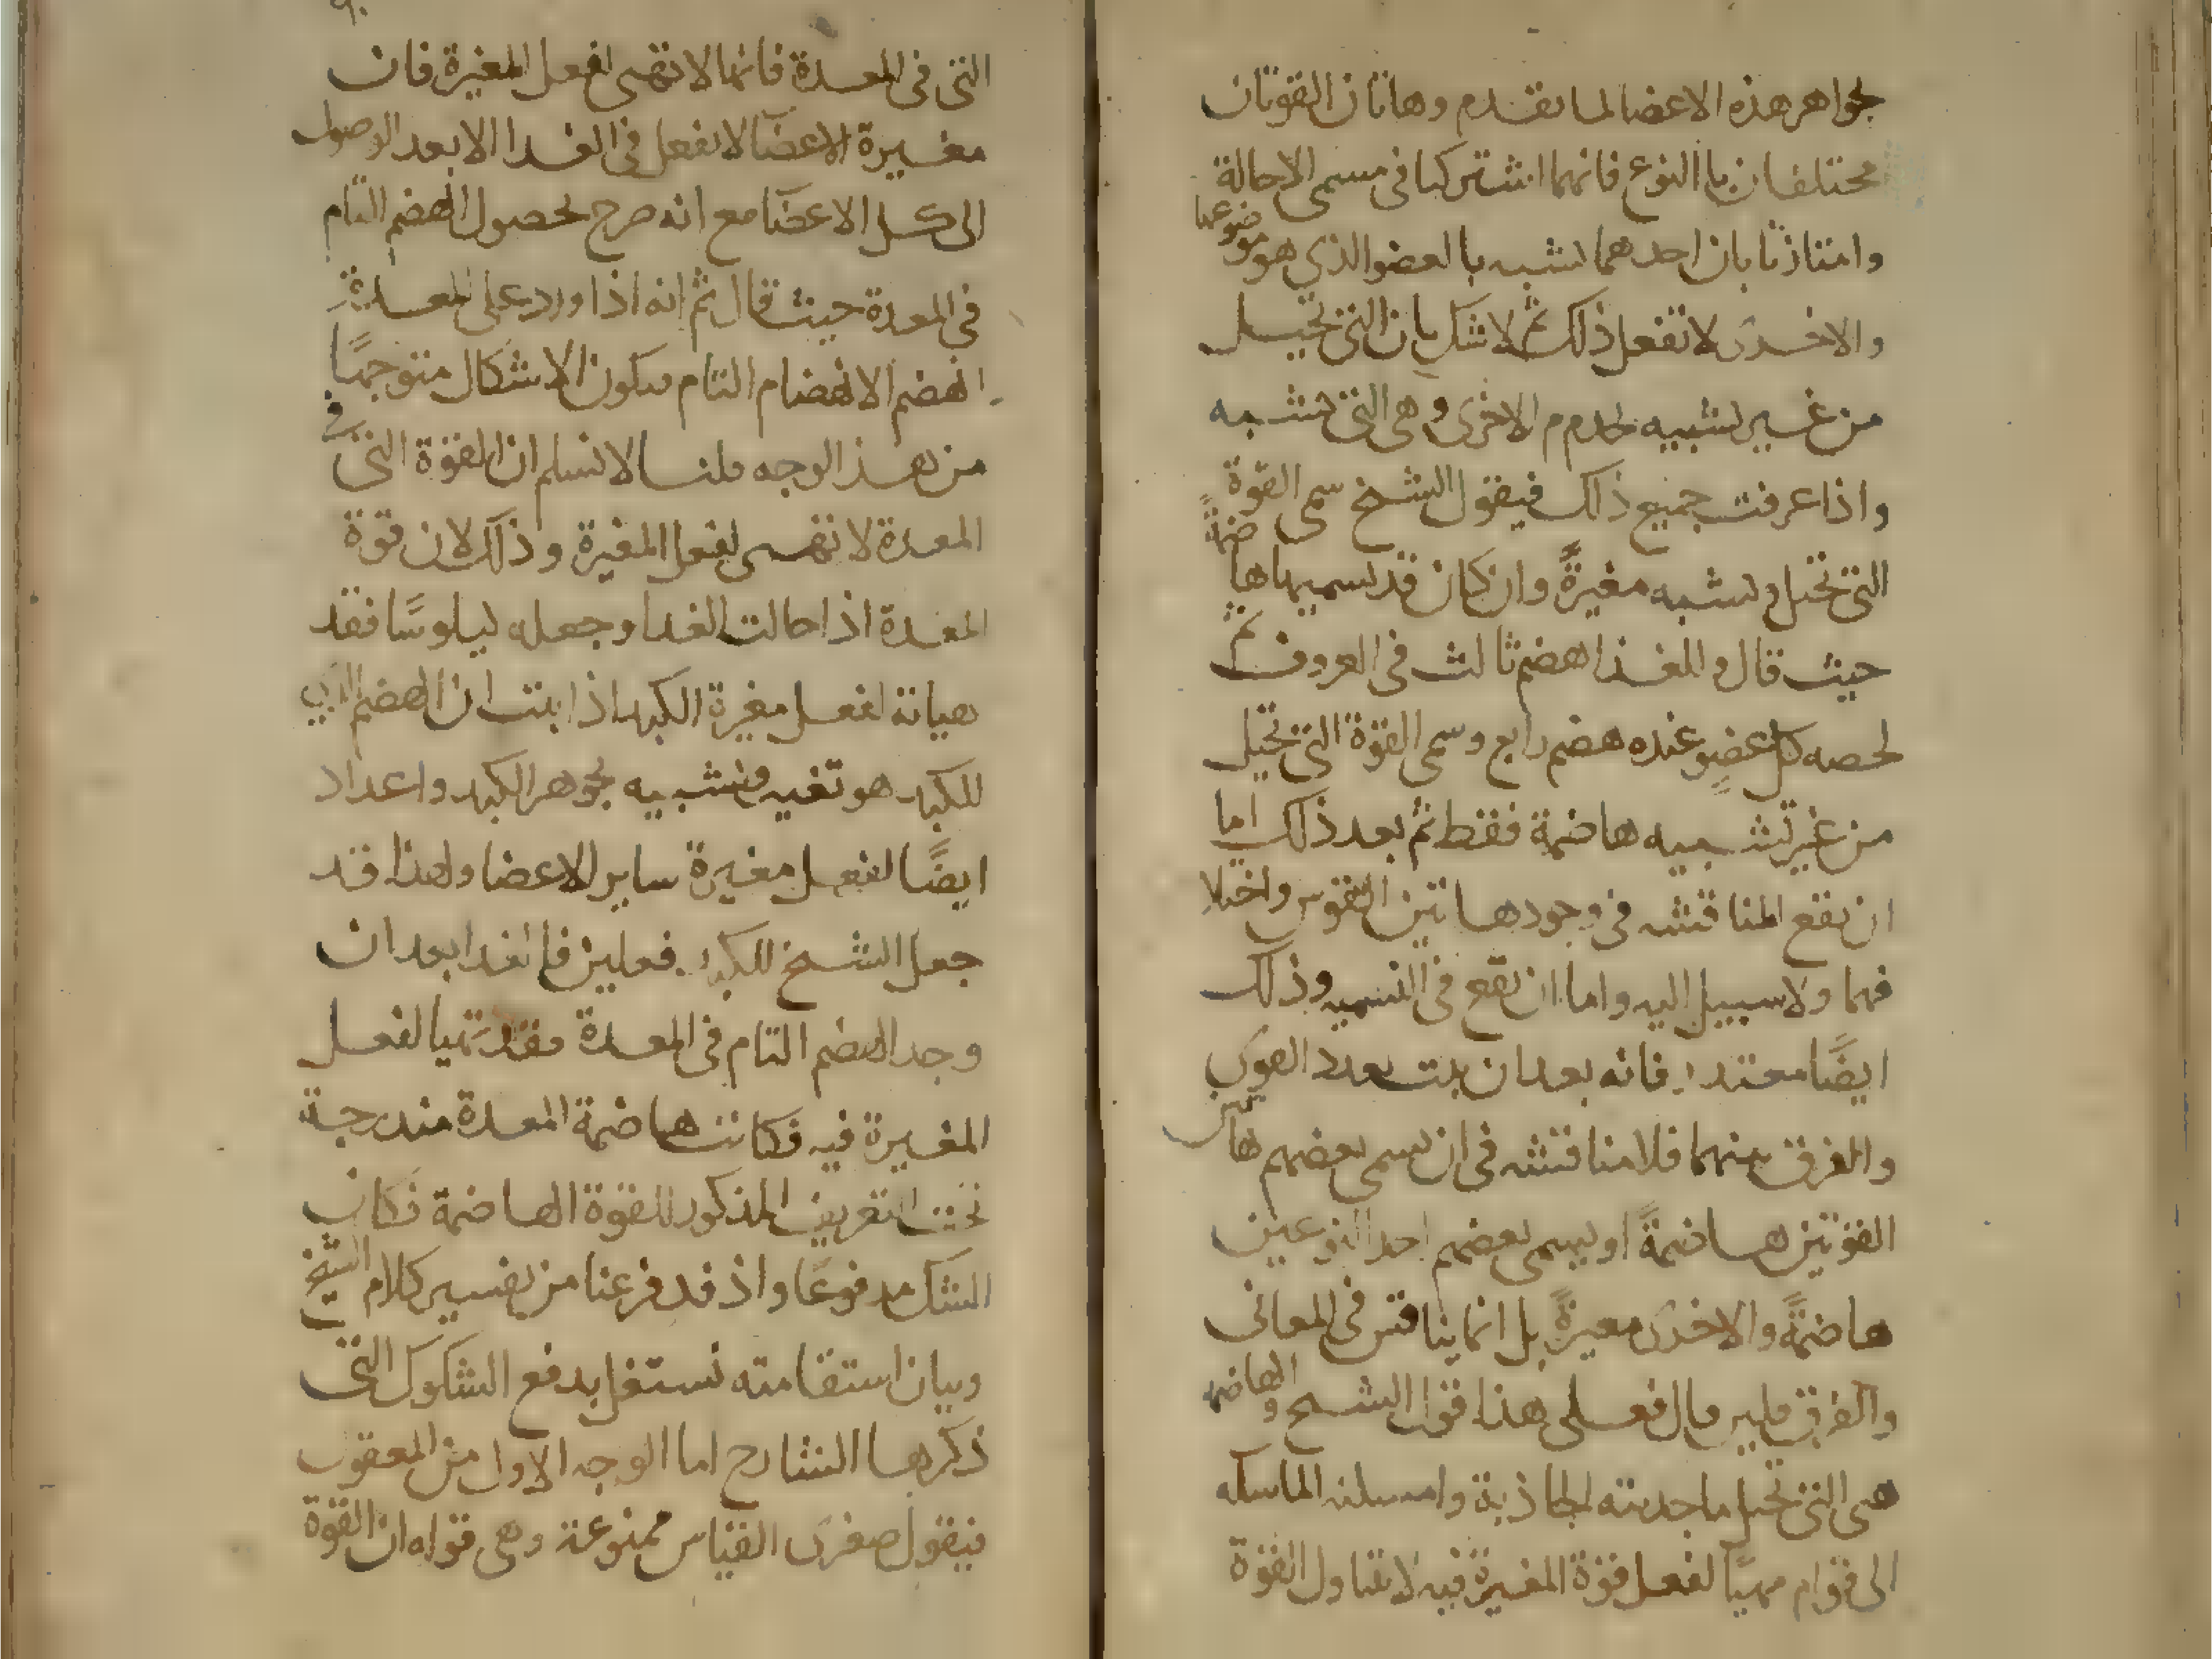 لجواهر هذه الاعضا لما تقدم وهاتان القوتان
مختلفان بالنوع فانهما اشتركا في مسمى الاحالة
وامتازتا بان احدهما تشبه بالعضو الذي هو موضوعها
والاخرى لا تفعل ذلك ثم لا شك بان التي تحيل
من غير تشبيه تخدم الاخرى وهي التي تشبه
واذا عرفت جميع ذلك فيقول الشيخ سمى القوة
التي تحيل وتشبه مغيرةً وان كان قد يسميها هاضمةً
حيث قال وللغذا هضم ثالث في العروق ثم
لحصه كل عضوٍ عنده هضم رابع وسمى القوة التي تحيل
من غير تشبيه هاضمة فقط ثم بعد ذلك اما
ان تقع المناقشه في وجود هاتين القوتين واختلا
فهما ولا سبيل اليه واما ان تقع في التسميه وذلك
ايضًا فانه بعد ان ثبت تعدد القوى
والفرق بينهما فلا مناقشه في ان يسمي بعضهم هاتين
القوتين هاضمةً او يسمي بعضهم احد النوعين
هاضمةً والاخرى مغيرةً بل انما يناقش في المعاني
والفرق فعلى هذا قول الشيخ والهاضمه
هى التي تحيل ما جذبته الجاذبة وامسكته الماسكه
الى قوام مهيّا لفعل قوة المغيرة فيه لا يتناول القوة
التي في المعدة فانها لا تهيى لفعل المغيرة فان
مغيرة الاعضا لا تفعل في الغدا الا بعد الوصول
الى كل الاعضا مع انه صرح بحصول الهضم التام
في المعدة حيث قال ثم انه اذا ورد على المعدة
انهضم الانهضام التام فيكون الاشكال متوجهًا
من هذ الوجه قلنا لا نسلم ان القوة التي في
المعدة لا تهيى لفعل المغيرة وذلك لان قوة
المعدة اذا حالت الغدا وجعله كيلوسًا فقد
هياته لفعل مغيرة الكبد اذا ثبت ان الهضم الذي
للكبد هو تغير وتشبيه بجوهر الكبد واعداد
ايضًا لفعل مغيرة ساير الاعضا ولهذا قد
جعل الشيخ للكبد فعلين فالغدا بعد ان
وجد الهضم التام في المعدة فقد تهيا لفعل
المغيرة فيه فكانت هاضمة المعدة مندرجة
تحت التعريف المذكور للقوة الهاضمة فكان
الشك مدفوعًا واذ قد فرغنا من تفسير كلام الشيخ
وبيان استقامته نستغل بدفع الشكوك التي
ذكرها الشارح اما الوجه الاول من المعقول
فيقول صغرى القياس ممنوعة وهي قوله ان القوة